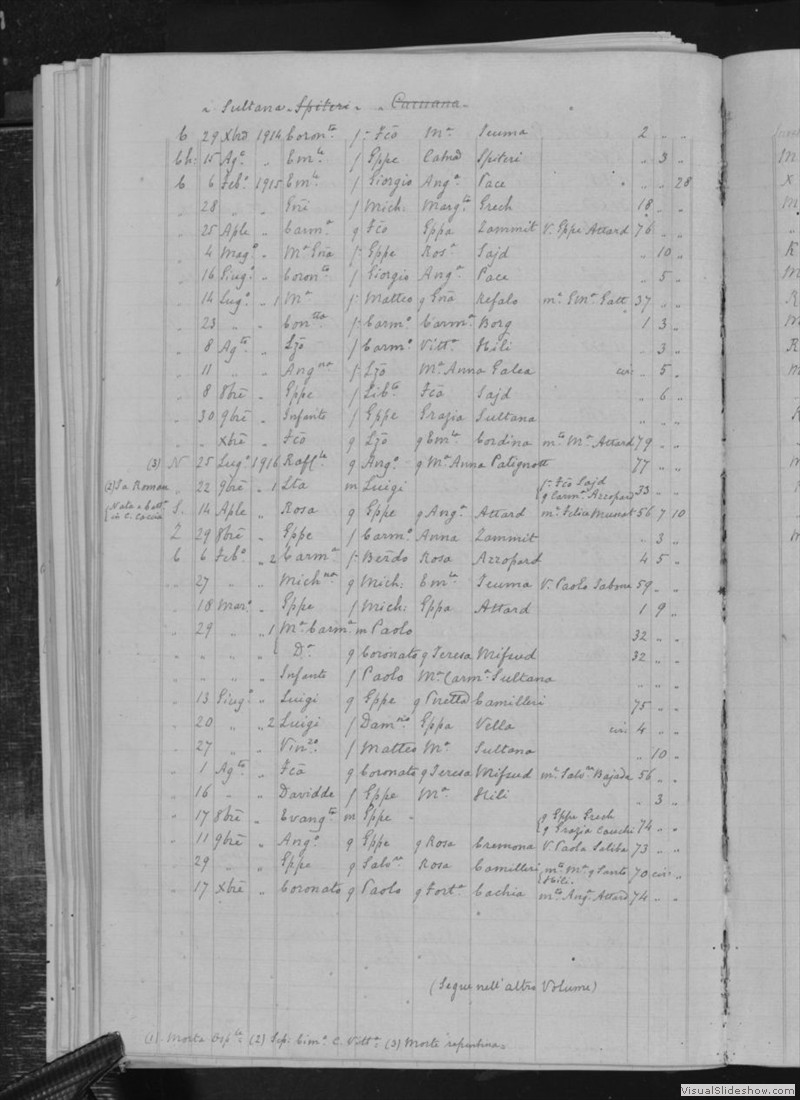 „ Sultana - Spiteri - „ Caruana -
C 29 Xbre 1914 Coronta f- Fco Ma Scuma 2 „ „
Ch: 15 Ago „ Emla f Gppe Catna Spiteri „ 3 „
C 6 Febo 1915 Emla f Giorgio Anga Pace „ „ 28
„ 28 „ „ f Mich: Margta Grech 18 „ „
„ 25 Aple „ Carma g Fco Gppa Zammit V. Gppe Attard 76 „ „
„ 4 Mago „ Ma f Gppe Rosa Sajd „ 10 „
„ 16 Giugo „ Coronta f Giorgio Anga Pace „ 5 „
„ 14 Lugo „ 1 Ma f- Matteo g Refalo 37 „ „
„ 23 „ „ f- Carmo Carma Borg 1 3 „
„ 8 Agto „ Lzo f Carmo Vitta Hili „ 3 „
„ 11 „ „ Angna f- Lzo Ma Anna Galea cir: „ 5 „
„ 8 8bre „ Gppe f Libto Fca Sajd „ 6 „
„ 30 9bre „ Infante f Gppe Grazia Sultana „ „ „
„ „ Xbre „ Fco g Lzo g Emla Cordina Ma Attard 79 „ „
(3) N 25 Lugo 1916 Rafla g Ango g Ma Anna Patignott 77 „ „
(2) Sa Roman „ 22 9bre „ 1 m Luigi f- Fco Sajd g Carma Azzopard 33 „ „
S. 14 Aple „ Rosa g Gppe g Anga Attard 56 7 10
Z 29 8bre „ Gppe f Carmo Anna Zammit „ 3 „
C 6 Febo „ 2 Carma f- Berdo Rosa Azzopard 4 5 „
„ 27 „ „ Michna g Mich: Emla Scuma V. Paolo Sabone 59 „ „
„ 18 Mar: „ Gppe f Mich: Gppa Attard 1 9 „
„ 29 „ „ 1 Ma Carma m Paolo 32 „ „
„ „ „ „ Da g Coronato g Teresa Mifsud 32 „ „
„ „ „ „ Infante f Paolo Ma Carma Sultana „ „ „
„ 13 Giugo „ Luigi g Gppe g Camilleri 75 „ „
„ 20 „ „ 2 Luigi f Gppa Vella cir: 4 „ „
„ 27 „ „ Vinzo f Matteo Ma Sultana „ 10 „
„ 1 Agto „ Fco g Coronato g Teresa Mifsud Bajada 56 „ „
„ 16 „ „ Davidde f Gppe Ma Hili „ 3 „
„ 17 8bre „ Evangta m Gppe „ g Gppe Grech g Grazia Cauchi 74 „ „
„ 11 9bre „ Ango g Gppe g Rosa Cremona V. Paola Saliba 73 „ „
„ 29 „ „ Gppe g Salvre Rosa Camilleri Ma g Santo Hili. 70 cir: „
„ 17 Xbre „ Coronato g Paolo g Forta Cachia Attard 74 „ „
(Segue nell'altro Volume)
(1) Morta (2) (3) Morte repentina.
VisualSlideshow.com